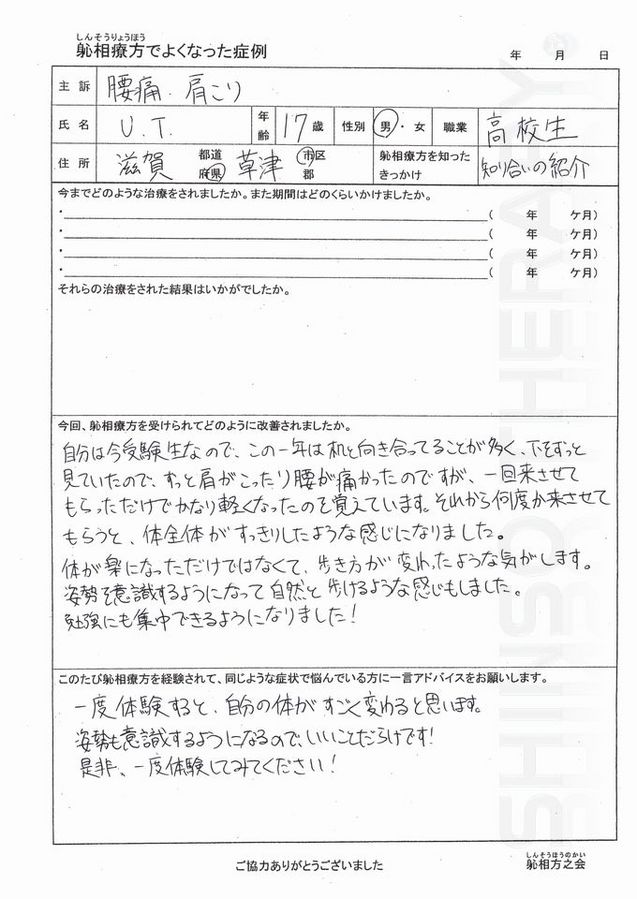 しんそうりょうほう
躰相療方でよくなった症例
年 月 日
主訴 腰痛 肩こり
氏名 U.T. 年齢 17歳 性別 男・女 職業 高校生
住所 滋賀 都道府県 草津 市区郡 躰相療方を知ったきっかけ 知り合いの紹介
今までどのような治療をされましたか。また期間はどのくらいかけましたか。
・ ( 年 ケ月)
・ ( 年 ケ月)
・ ( 年 ケ月)
・ ( 年 ケ月)
それらの治療をされた結果はいかがでしたか。
今回、躰相療方を受けられてどのように改善されましたか。
自分は今受験生なので、この一年は机と向き合ってることが多く、下をずっと
見ていたので、ずっと肩がこったり腰が痛かったのですが、一回来させて
もらっただけでかなり軽くなったのを覚えています。それから何度か来させて
もらうと、体全体がすっきりしたような感じになりました。
体が楽になっただけではなくて、歩き方が変わったような気がします。
姿勢を意識するようになって自然と歩けるような感じもしました。
勉強にも集中できるようになりました!
このたび躰相療方を経験されて、同じような症状で悩んでいる方に一言アドバイスをお願いします。
一度体験すると、自分の体がすごく変わると思います。
姿勢も意識するようになるので、いいことだらけです!
是非、一度体験してみてください!
SHINSO THERAPY
ご協力ありがとうございました
しんそうほうのかい
躰相方之会